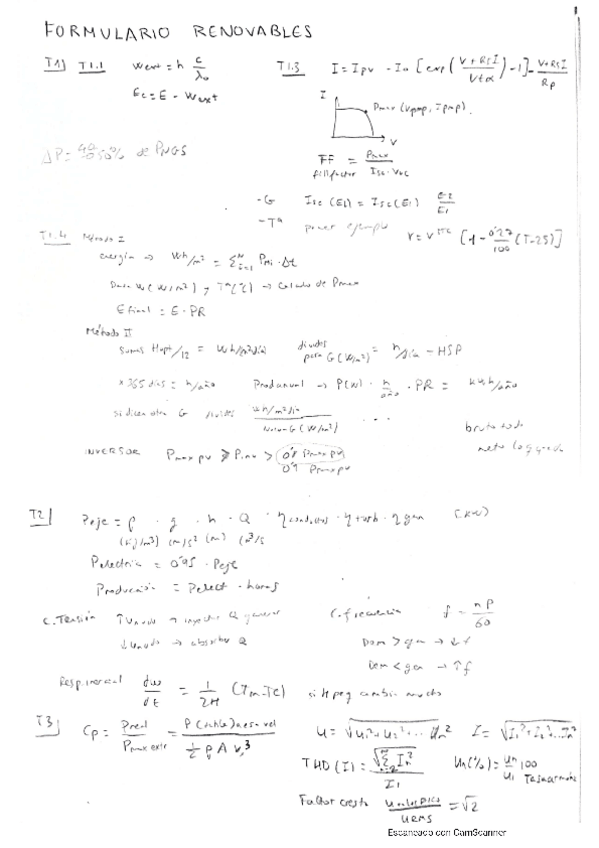 FORMULARIO RENOVABLES
T1) T1.1 Wext = h c/λo
Ec = E - Wext
ΔP = 40 a 50% de PNGS
T1.3 I = Ipv - Io [exp(V+RsI/Vtα) - 1] - V+RsI/Rp
I
Pmax (Vpmp, Ipmp).
V
FF = Pmax/Isc·Voc
fillfactor
-G Isc(E2) = Isc(E1) E2/E1
-Tª power ejemplo V = V^STC [1 - 0'27/100 (T-25)]
T1.4 Método I
energía → Wh/m² = Σ Pmi·Δt
W (W/m²) y Tª (ºC) → Calculo de Pmax
E final = E·PR
Método II
suma Hopt/12 = Wh/m²día divides para G (W/m²) = h/día - HSP
x365 días = h/año Prod anual → P(W) · h/año · PR = kWh/año
si dicen otra G divides Wh/m²día / G (W/m²) ...
bruto todo
neto lo q
INVERSOR Pmax pv ≥ Pinv > 0'8 Pmax pv
0'9 Pmax pv
T2) Peje = ρ · g · h · Q · ηconducc · ηturb · ηgen (kW)
(kg/m³) (m/s²) (m) (m³/s
Pelectrica = 0'95 · Peje
Producción = Pelect · horas
C. Tensión ↑Unudo → inyectar Q generar
↓Unudo → absorber Q
C. frecuencia f = nP/60
Dem > gen → ↓f
Dem < gen → ↑f
Resp inercial dω/dt = 1/2H (Tm-Te) si H peq cambia mucho
T3) Cp = Preal/Pmax extr = P(tabla) a esa vel / ½ ρ A v³
U = √U1²+U2²+...Un² I = √I1²+I2²...In²
THD(I) = √Σ In² / I1 Un(%) = Un/U1 100 Tasa armónica
Factor cresta Uvalor pico/URMS = √2
Escaneado con CamScanner